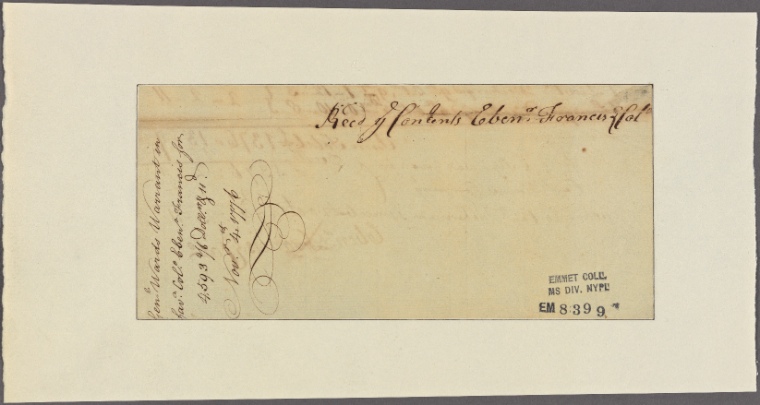 Recd ye Contents Ebenr Francis Col
Genl Wards Warrant in
favr Colo Ebenr Francis for
4,593 Dollars
Novr 4th 1776
EMMET COLL.
MS DIV. NYPL
EM 8399